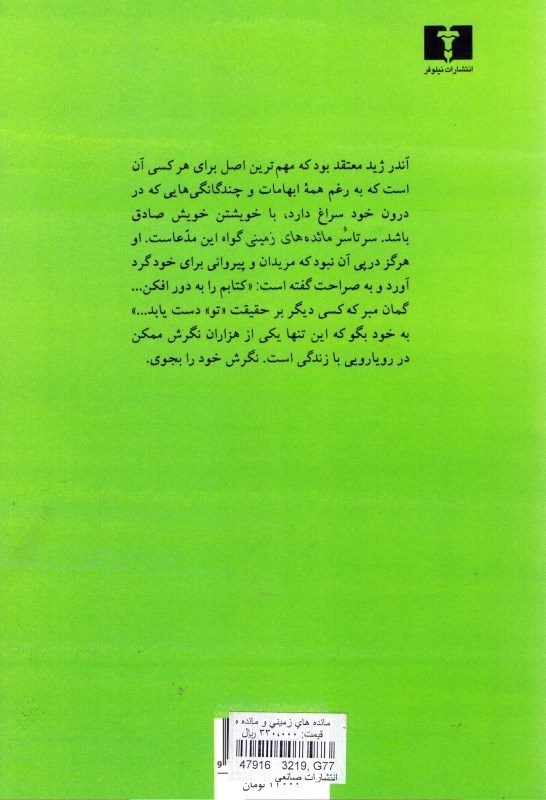 انتشارات نیلوفر
آندر ژید معتقد بود که مهم‌ترین اصل برای هر کسی آن
است که به رغم همهٔ ابهامات و چندگانگی‌هایی که در
درون خود سراغ دارد، با خویشتن خویش صادق
باشد. سرتاسر مائده‌های زمینی گواه این مدّعاست. او
هرگز درپی آن نبود که مریدان و پیروانی برای خود گرد
آورد و به صراحت گفته است: «کتابم را به دور افکن...
گمان مبر که کسی دیگر بر حقیقت «تو» دست یابد...»
به خود بگو که این تنها یکی از هزاران نگرش ممکن
در رویارویی با زندگی است. نگرش خود را بجوی.
مائده های زمینی و مائده ه
قیمت: ۳۳۰،۰۰۰ ریال
47916 3219, G77
انتشارات صانعی
تومان